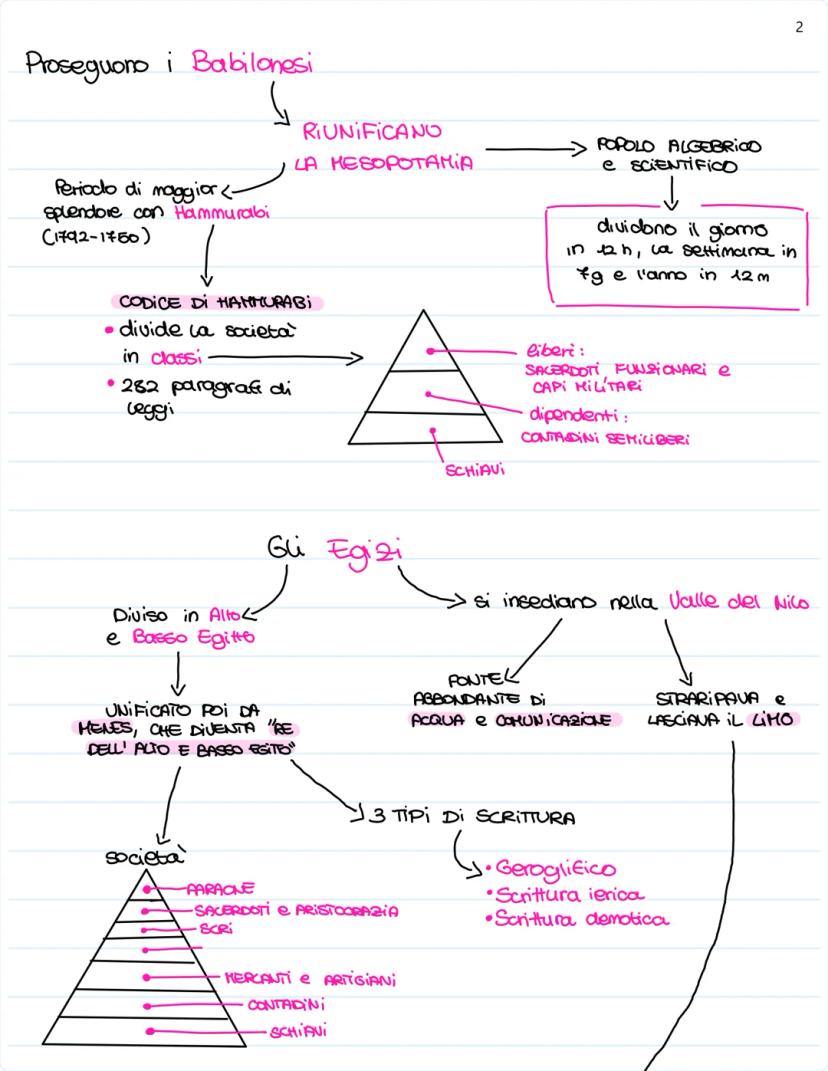 2
Proseguono i Babilonesi
RIUNIFICANO
LA MESOPOTAMIA
POPOLO ALGEBRICO
e SCIENTIFICO
dividono il giorno
in 12 h, la settimana in
7g e l'anno in 12 m
Periodo di maggior
splendore con Hammurabi
(1792-1750)
CODICE DI HAMMURABI
• divide la società
in classi
• 282 paragrafi di
leggi
liberi:
SACERDOTI FUNZIONARI e
CAPI MILITARI
dipendenti:
CONTADINI SEMILIBERI
SCHIAVI
Gli Egizi
Diviso in Alto
e Basso Egitto
si insediano nella Valle del Nilo
UNIFICATO POI DA
MENES, CHE DIVENTA "RE
DELL' ALTO E BASSO EGITO"
FONTE
ABBONDANTE DI
ACQUA e COMUNICAZIONE
STRARIPAVA e
LASCIAVA IL LIMO
3 TIPI DI SCRITTURA
• Geroglifico
• Scrittura ierica
• Scrittura demotica
società
FARAONE
SACERDOTI e ARISTOCRAZIA
SCRI
MERCANTI e ARTIGIANI
CONTADINI
SCHIAVI